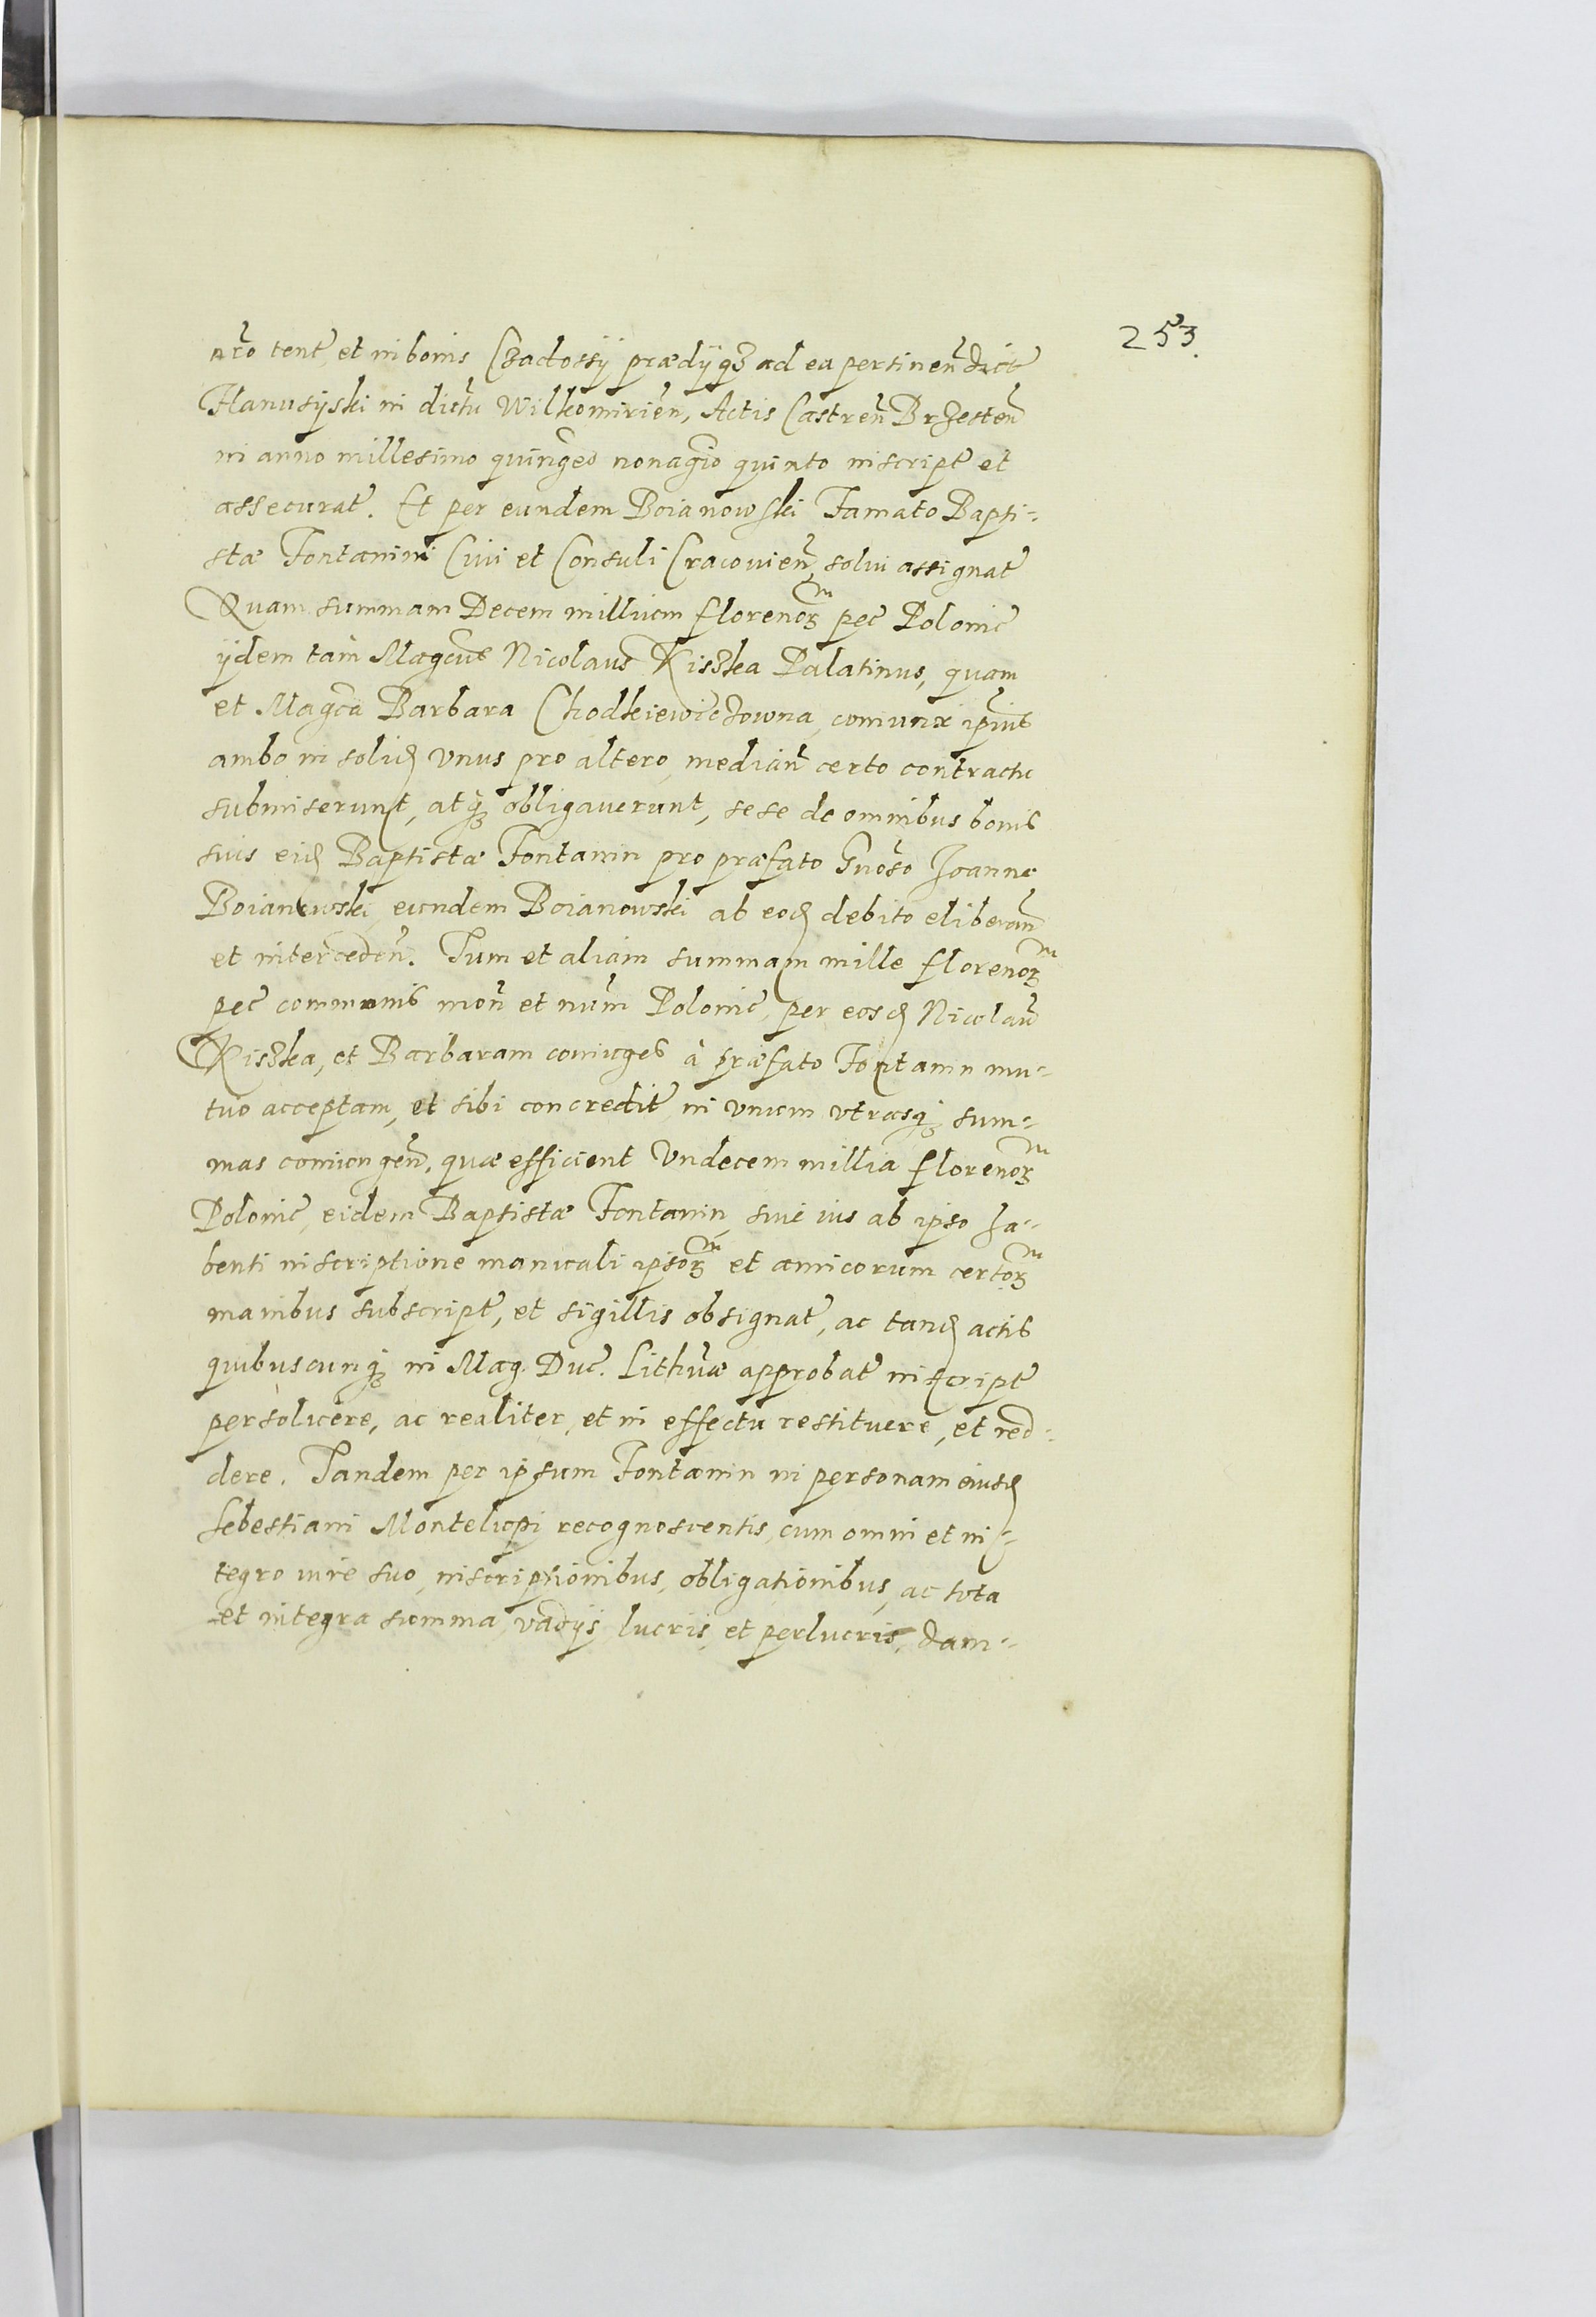 253.
nr̃o tent̃ et in bonis Czadossÿ prædÿqꝫ ad ea pertineñ dict̃
Hanusiski in dict̃u Wilkomirieñ, Actis Castreñ Brzesteñ
in anno millesimo quingẽo nonagĩo quinto inscript̃ et
assecurat̃. Et per eundem Boianowski Famato Bapti-
stæ Fontanini Civi et Consuli Cracovieñ, solvi assignat̃
Quam summam Decem millium florenoꝝ pec̃ Polonic̃
ÿdem tam Magcus Nicolaus Kiszka Palatinus, quam
et Magca Barbara Chodkiewiczowna, coniunx ipius
ambo in solid̃ unus pro altero, median̄t certo contractu
submiserunt, atqꝫ obligaverunt, sese de omnibus bonis
suis eid̃ Baptistæ Fontanin pro præfato Gnoso Joanne
Boianowski, eundem Boianowski ab eod̃ debito eliberañ
et intercedeñ. Tum et aliam summam mille florenoꝝ
pec̃ communis moñ et num̃ Polonic̃, per eosd̃ Nicolaũ
Kiszka, et Barbaram coniuges à præfato Fontanin mu-
tuo acceptam, et sibi concredit̃ in unum utrasqꝫ sum-
mas coniungeñ, quæ efficient Undecem millia florenoꝝ
Polonic̃, eidem Baptistæ Fontanin, sive ius ab ipso ha-
benti inscriptione manuali ipsoꝝ et amicorum certoꝝ
manibus subscript̃, et sigillis obsignat̃, ac tand̃ actis
quibuscunqꝫ in Mag. Duc̃. Lithũæ approbat̃ inscript̃
persoluere, ac realiter, et in effectu restituere, et red-
dere. Tandem per ipsum Fontanin in personam eiusd̃
Sebestiani Montelupi recognoscentis, cum omni et in-
tegro iure suo, inscriptionibus, obligationibus, ac tota
et integra summa, vadÿs, lucris, et perlucris, dam-